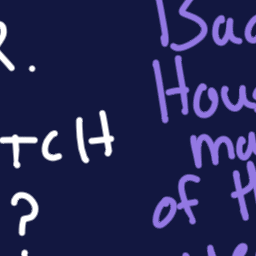 R.
TCH
?
Bac
Hous
ma
of th